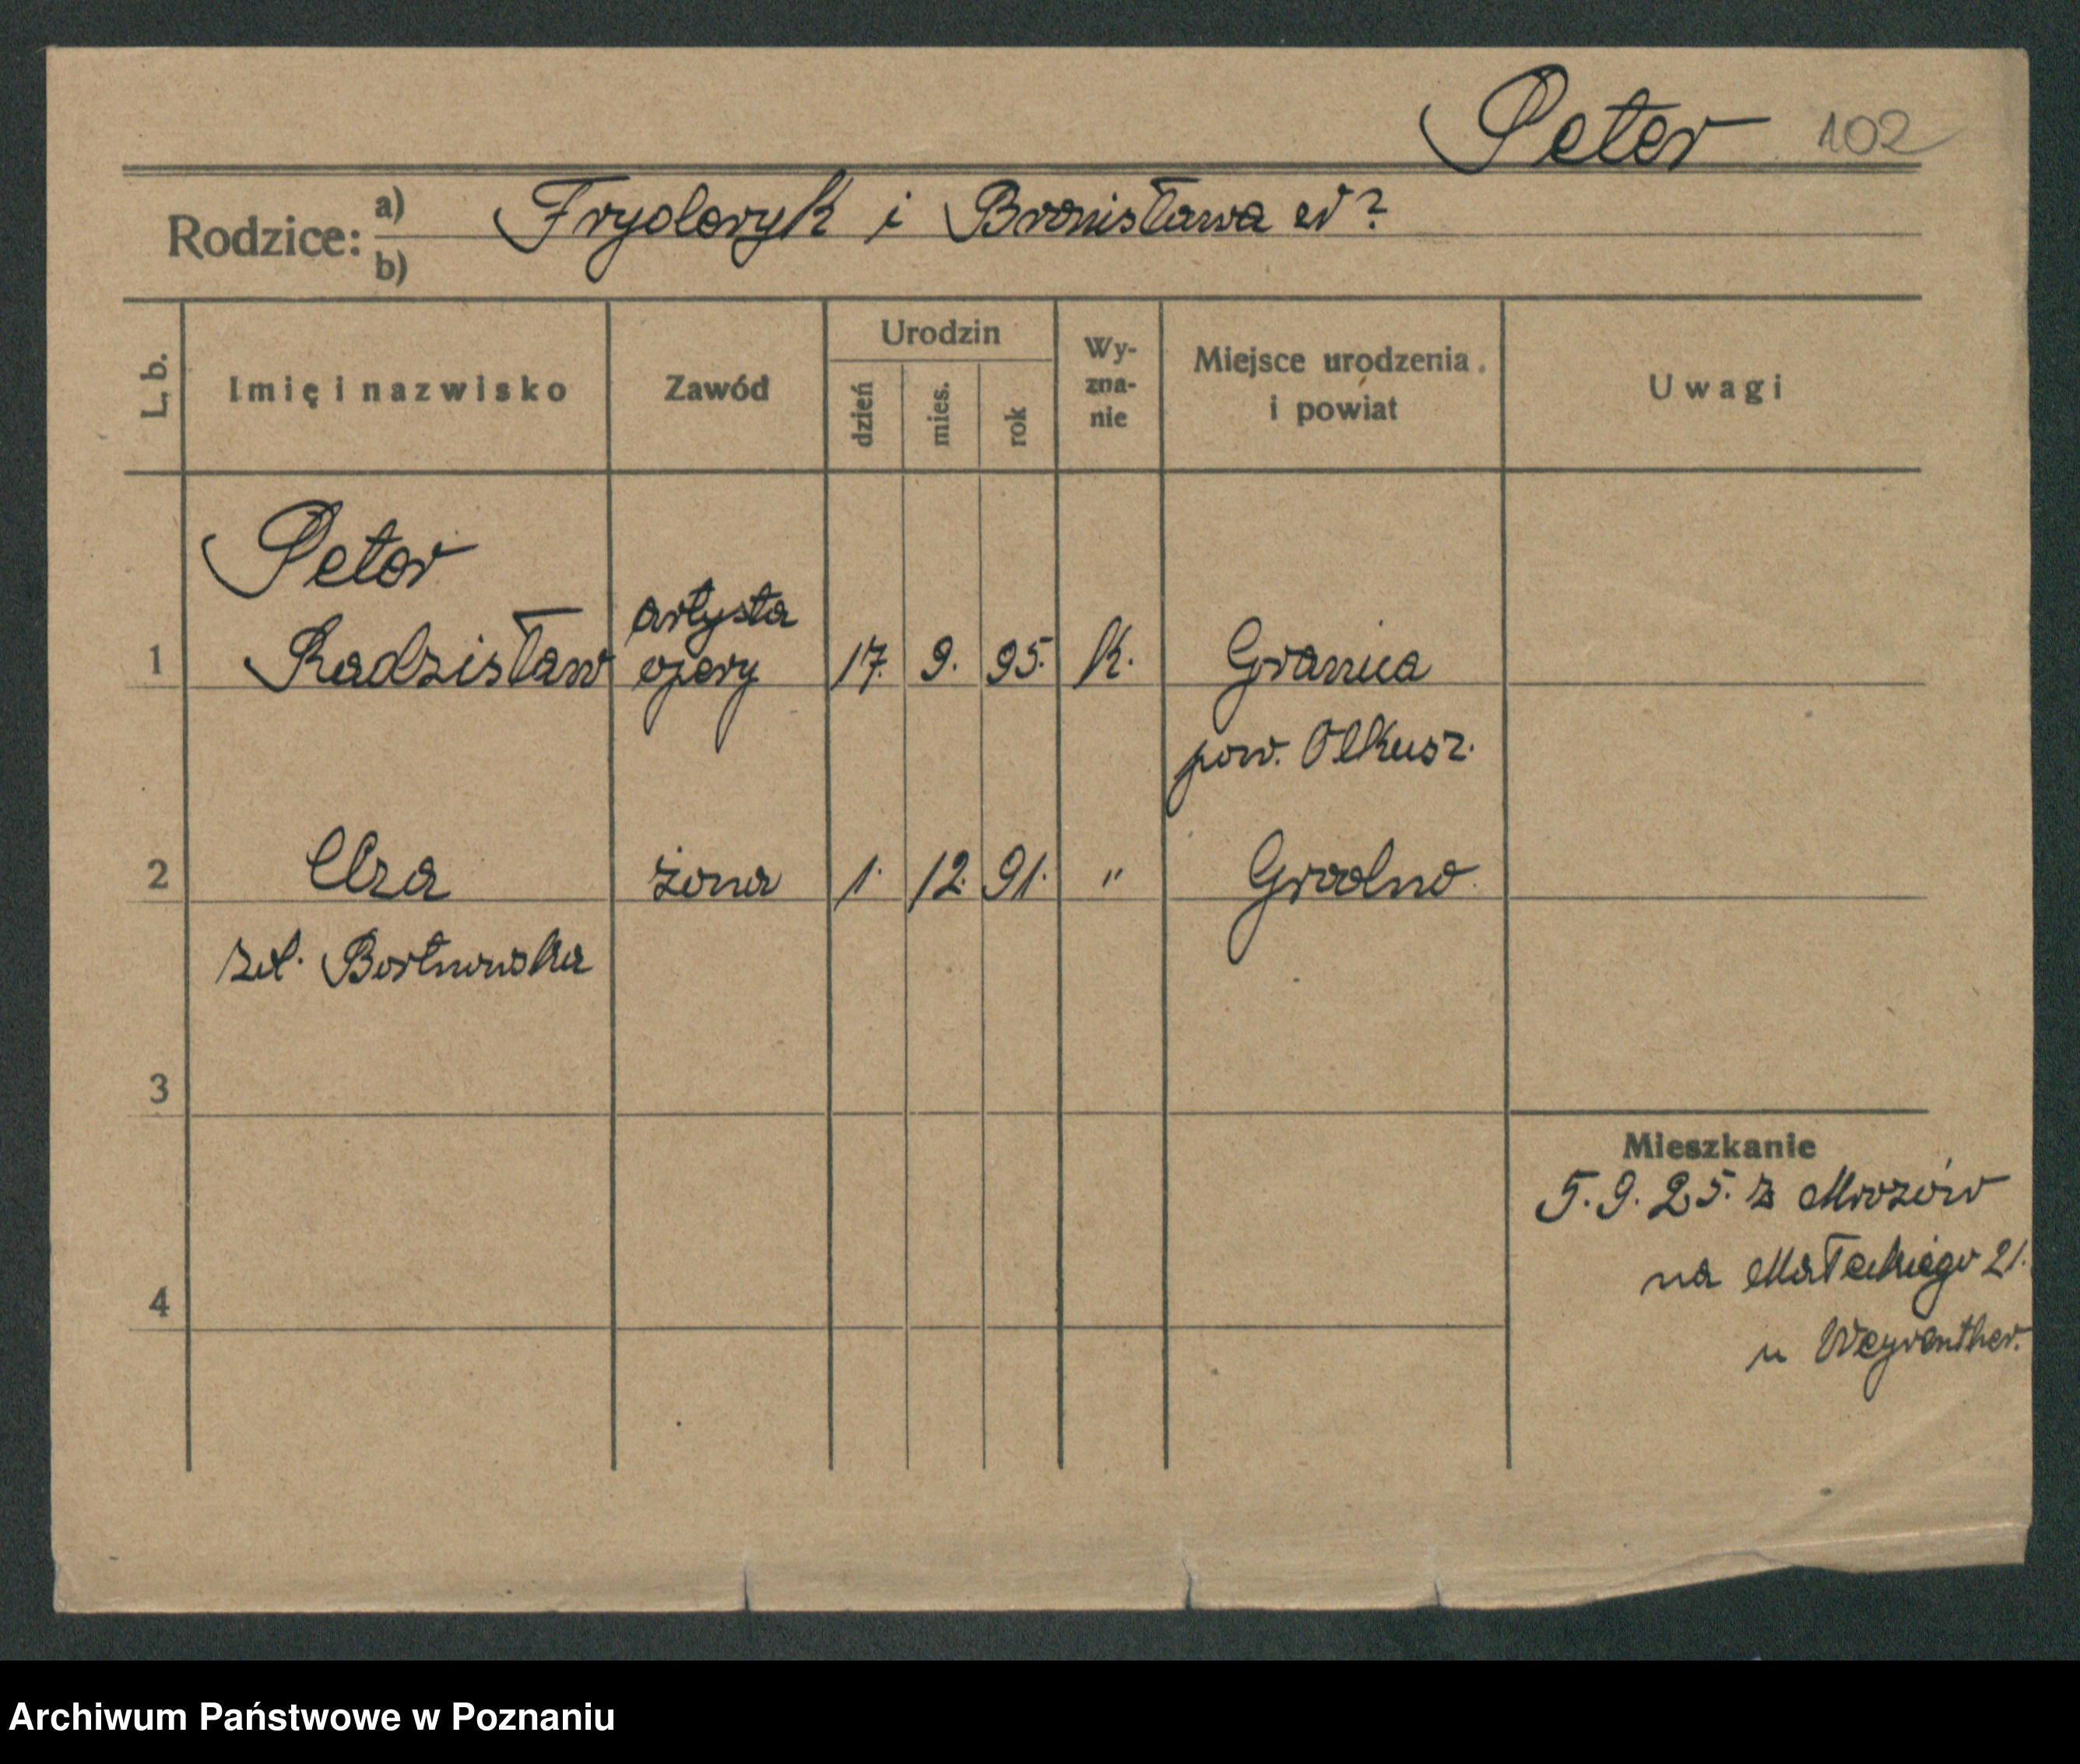 Peter 102
Rodzice: a) Fryderyk i Bronisława
b)
L. b. Imię i nazwisko Zawód Urodzin dzień mies. rok Wy-zna-nie Miejsce urodzenia i powiat Uwagi
Peter
artysta
1 Radzisław opery 17. 9. 95. K. Granica
pow. Olkusz.
2 żona 1. 12. 91. " Grodno.
Bortnowska
3
Mieszkanie
5. 9. 25. z Mrozów
na Małeckiego 21.
4
u Weyranther.
Archiwum Państwowe w Poznaniu